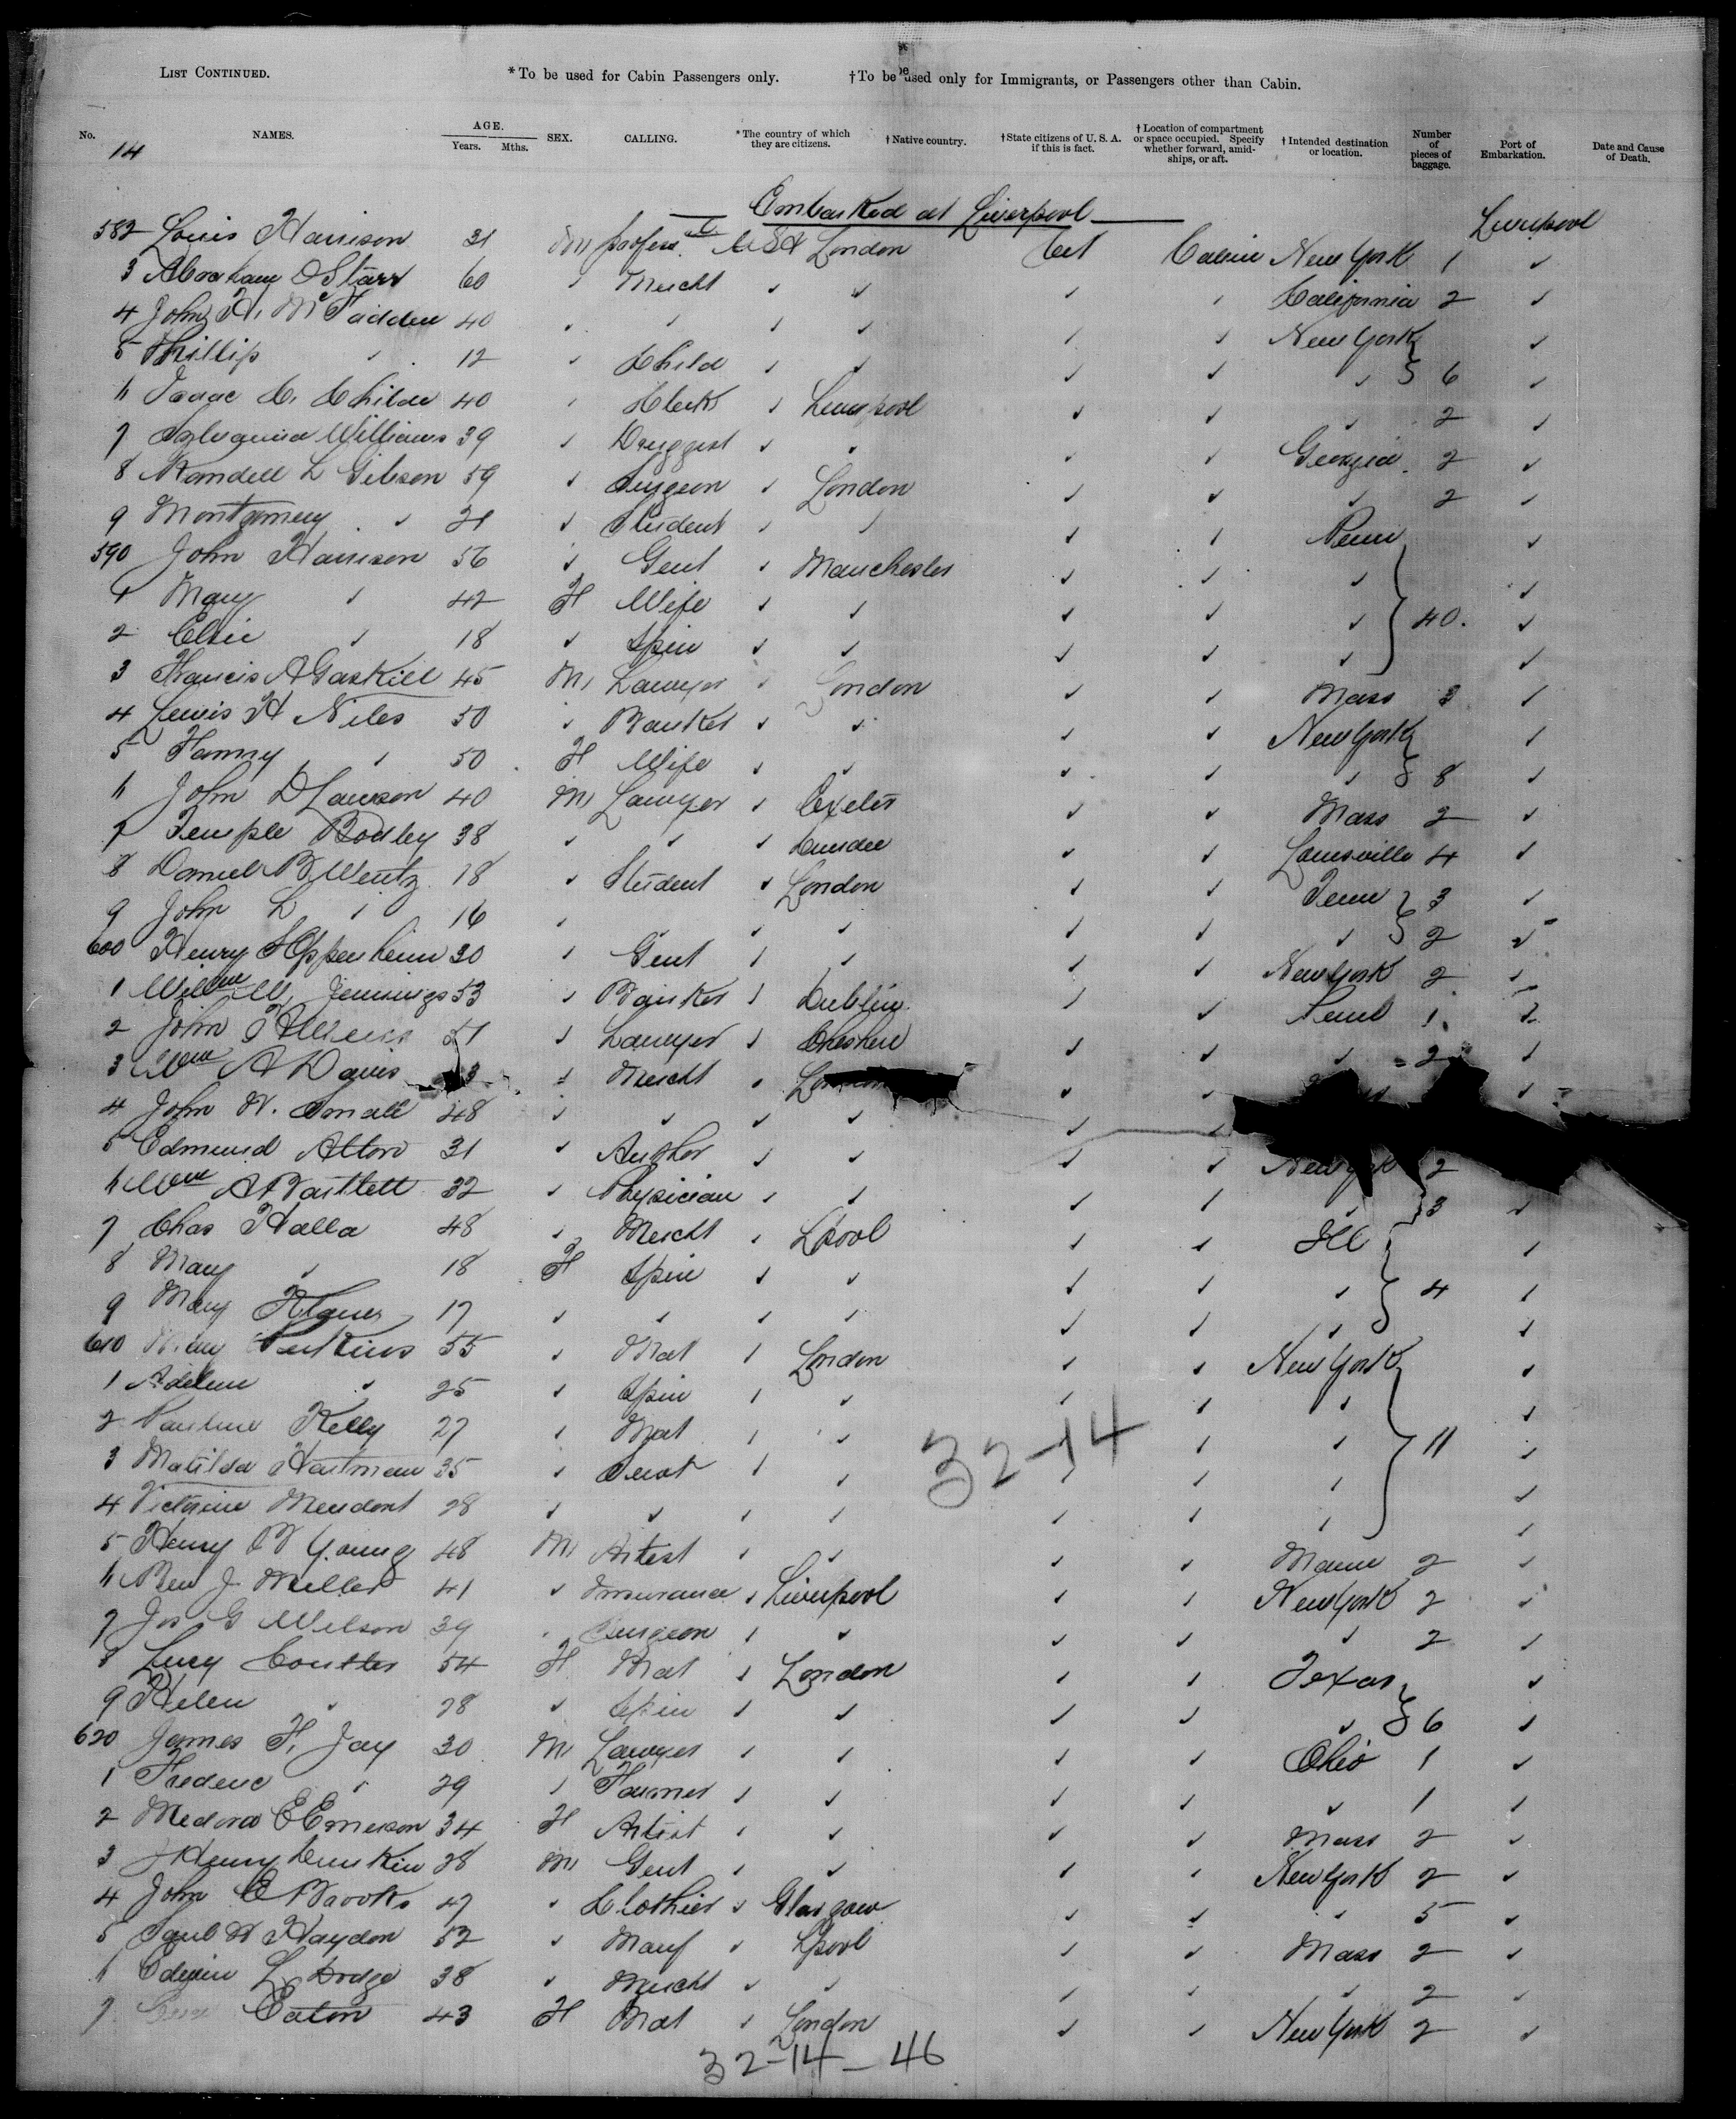 LIST CONTINUED. *To be used for Cabin Passengers only. †To be used only for Immigrants, or Passengers other than Cabin.
No. NAMES. AGE. Years. Mths. SEX. CALLING. *The country of which they are citizens. †Native country. †State citizens of U. S. A. if this is fact. †Location of compartment or space occupied. Specify whether forward, amidships, or aft. †Intended destination or location. Number of pieces of baggage. Port of Embarkation. Date and Cause of Death.
14
Embarked at Liverpool
Liverpool
582 Louis Harrison 31 M USA London Cit Cabin New York 1 ✓
3 Abraham Starr 60 ✓ Mercht ✓ ✓ ✓ ✓ California 2 ✓
4 John H. McFadden 40 ✓ ✓ ✓ ✓ ✓ ✓ New York ✓
5 Phillip ✓ 12 ✓ Child ✓ ✓ ✓ ✓ ✓ 6 ✓
6 Isaac C. Childe 40 ✓ Clerk ✓ Liverpool ✓ ✓ ✓ 2 ✓
7 Williams 39 ✓ Druggist ✓ ✓ ✓ ✓ Georgia 2 ✓
8 Randell L Gibson 59 ✓ Surgeon ✓ London ✓ ✓ ✓ 2 ✓
9 Montgomery ✓ 21 ✓ Student ✓ ✓ ✓ ✓ Penn ✓
590 John Harrison 56 ✓ Gent ✓ Manchester ✓ ✓ ✓ ✓
1 Mary ✓ 42 F Wife ✓ ✓ ✓ ✓ ✓ 40. ✓
2 Elsie ✓ 18 ✓ Spin ✓ ✓ ✓ ✓ ✓ ✓
3 Francis A Gaskill 45 M Lawyer ✓ London ✓ ✓ Mass 3 ✓
4 Lewis H Niles 50 ✓ Banker ✓ ✓ ✓ ✓ New York ✓
5 Fanny ✓ 50 F Wife ✓ ✓ ✓ ✓ ✓ 8 ✓
6 John D Lawson 40 M Lawyer ✓ Exeter ✓ ✓ Mass 2 ✓
7 Temple Bodley 38 ✓ ✓ ✓ Dundee ✓ ✓ Louisville 4 ✓
8 Daniel B Wentz 18 ✓ Student ✓ London ✓ ✓ Penn 3 ✓
9 John L ✓ 16 ✓ ✓ ✓ ✓ ✓ ✓ 2 ✓
600 Henry S Oppenheim 30 ✓ Gent ✓ ✓ ✓ ✓ New York 2 ✓
1 Willm W. Jennings 53 ✓ Banker ✓ Dublin ✓ ✓ Penn 1 ✓
2 John ✓ Lawyer ✓ Cheshire ✓ ✓ ✓ 2 ✓
3 Wm A Davis ✓ Mercht ✓ London ✓ ✓ ✓
4 John W. Small 48 ✓ ✓ ✓ ✓ ✓ ✓
5 Edmund Alton 31 ✓ Author ✓ ✓ ✓ ✓ New York 2
6 Wm A Bartlett 32 ✓ Physician ✓ ✓ ✓ ✓ ✓ 3 ✓
7 Chas Halla 48 ✓ Mercht ✓ Lpool ✓ ✓ Ill ✓
8 Mary ✓ 18 F Spin ✓ ✓ ✓ ✓ ✓ 4 ✓
9 Mary 17 ✓ ✓ ✓ ✓ ✓ ✓ ✓ ✓
610 Perkins 55 ✓ Mat ✓ London ✓ ✓ New York ✓
1 ✓ 25 ✓ Spin ✓ ✓ ✓ ✓ ✓ ✓
2 Pauline Kelly 27 ✓ Mat ✓ ✓ ✓ ✓ 11 ✓
32-14
3 Matilda Hartman 35 ✓ Servt ✓ ✓ ✓ ✓ ✓ ✓
4 28 ✓ ✓ ✓ ✓ ✓ ✓ ✓ ✓
5 Henry W Young 48 M Artest ✓ ✓ ✓ ✓ 2 ✓
6 Ben J. Miller 41 ✓ Insurance ✓ Liverpool ✓ ✓ New York 2 ✓
7 Jos G Wilson 39 ✓ Surgeon ✓ ✓ ✓ ✓ ✓ 2 ✓
8 Lucy Coutter 54 F Mat ✓ London ✓ ✓ Texas ✓
9 Helen ✓ 28 ✓ Spin ✓ ✓ ✓ ✓ ✓ 6 ✓
620 James F. Jay 30 M Lawyer ✓ ✓ ✓ ✓ Ohio 1 ✓
1 Frederic ✓ 29 ✓ Farmer ✓ ✓ ✓ ✓ ✓ 1 ✓
2 Medora E Emerson 34 F Artist ✓ ✓ ✓ ✓ Mass 2 ✓
3 Henry Dunkin 28 M Gent ✓ ✓ ✓ ✓ New York 2 ✓
4 John E Brooks 47 ✓ Clothier ✓ Glasgow ✓ ✓ ✓ 5 ✓
5 Haydon 52 ✓ Manf ✓ Lpool ✓ ✓ Mass 2 ✓
6 Edwin L Dodge 38 ✓ Mercht ✓ ✓ ✓ ✓ ✓ 2 ✓
7 Eaton 43 F Mat ✓ London ✓ ✓ New York 2 ✓
32-14-46